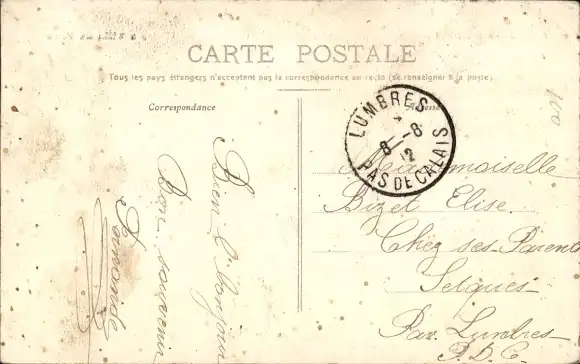 CARTE POSTALE
Tous les pays étrangers n'acceptent pas la correspondance au recto (se renseigner à la poste)
Correspondance
Adresse
LUMBRES
8 - 8
12
PAS DE CALAIS
100
Bien l bonjour
Bon souvenir
Fernande
Mademoiselle
Bizet Elise
Chez ses Parents
Setques
Par Lumbres
P. D. C.